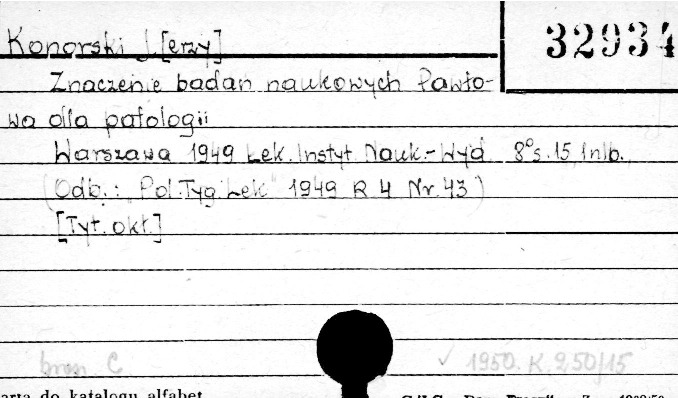 32934
Konorski J.[erzy]
Znaczenie badań naukowych Pawło-
wa dla patologii
Warszawa 1949 Lek. Instyt. Nauk.-Wyd. 8° s. 15, 1 nlb.
(Odb.: "Pol. Tyg. Lek" 1949 R 4 Nr. 43)
[Tyt. okł.]
C ✓ 1950. K. 250/15
do katalogu alfabet.